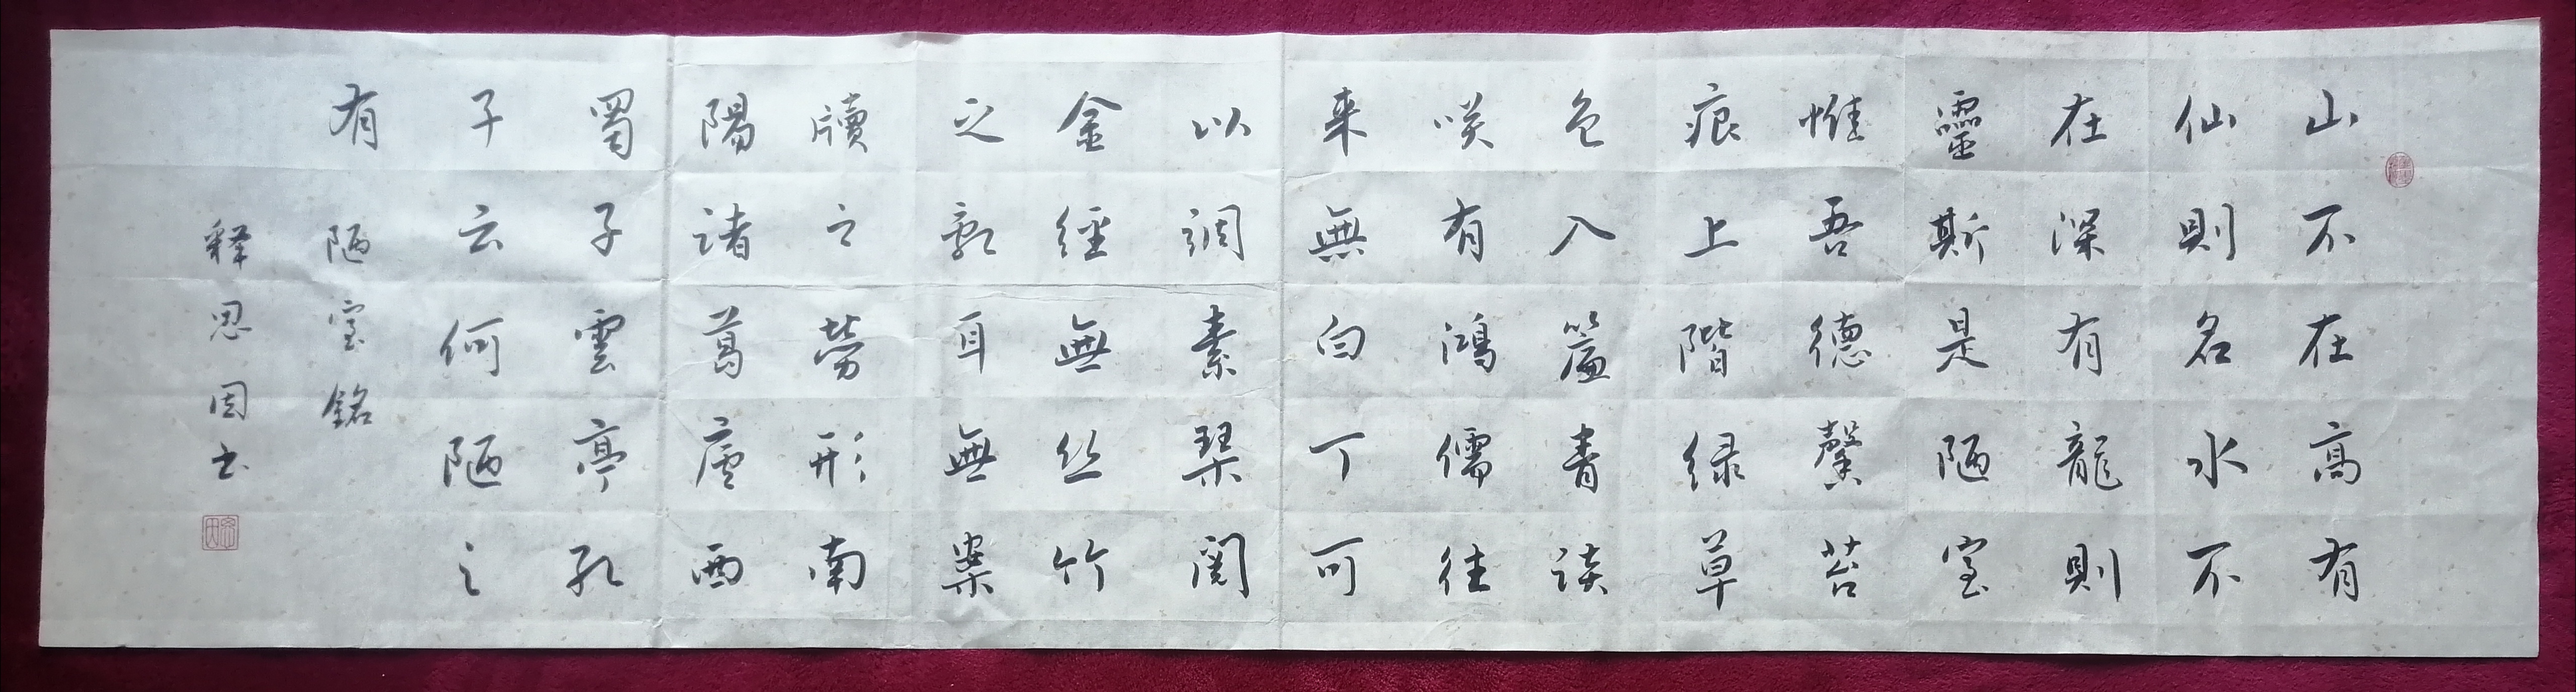 山不在高有
仙則名水不
在深有龍則
靈斯是陋室
惟吾德馨苔
痕上階绿草
色入簾青談
咲有鴻儒往
来無白丁可
以調素琴閱
金經無丝竹
之亂耳無案
牘之勞形南
陽諸葛廬西
蜀子雲亭孔
子云何陋之
有 陋室銘
释思因书